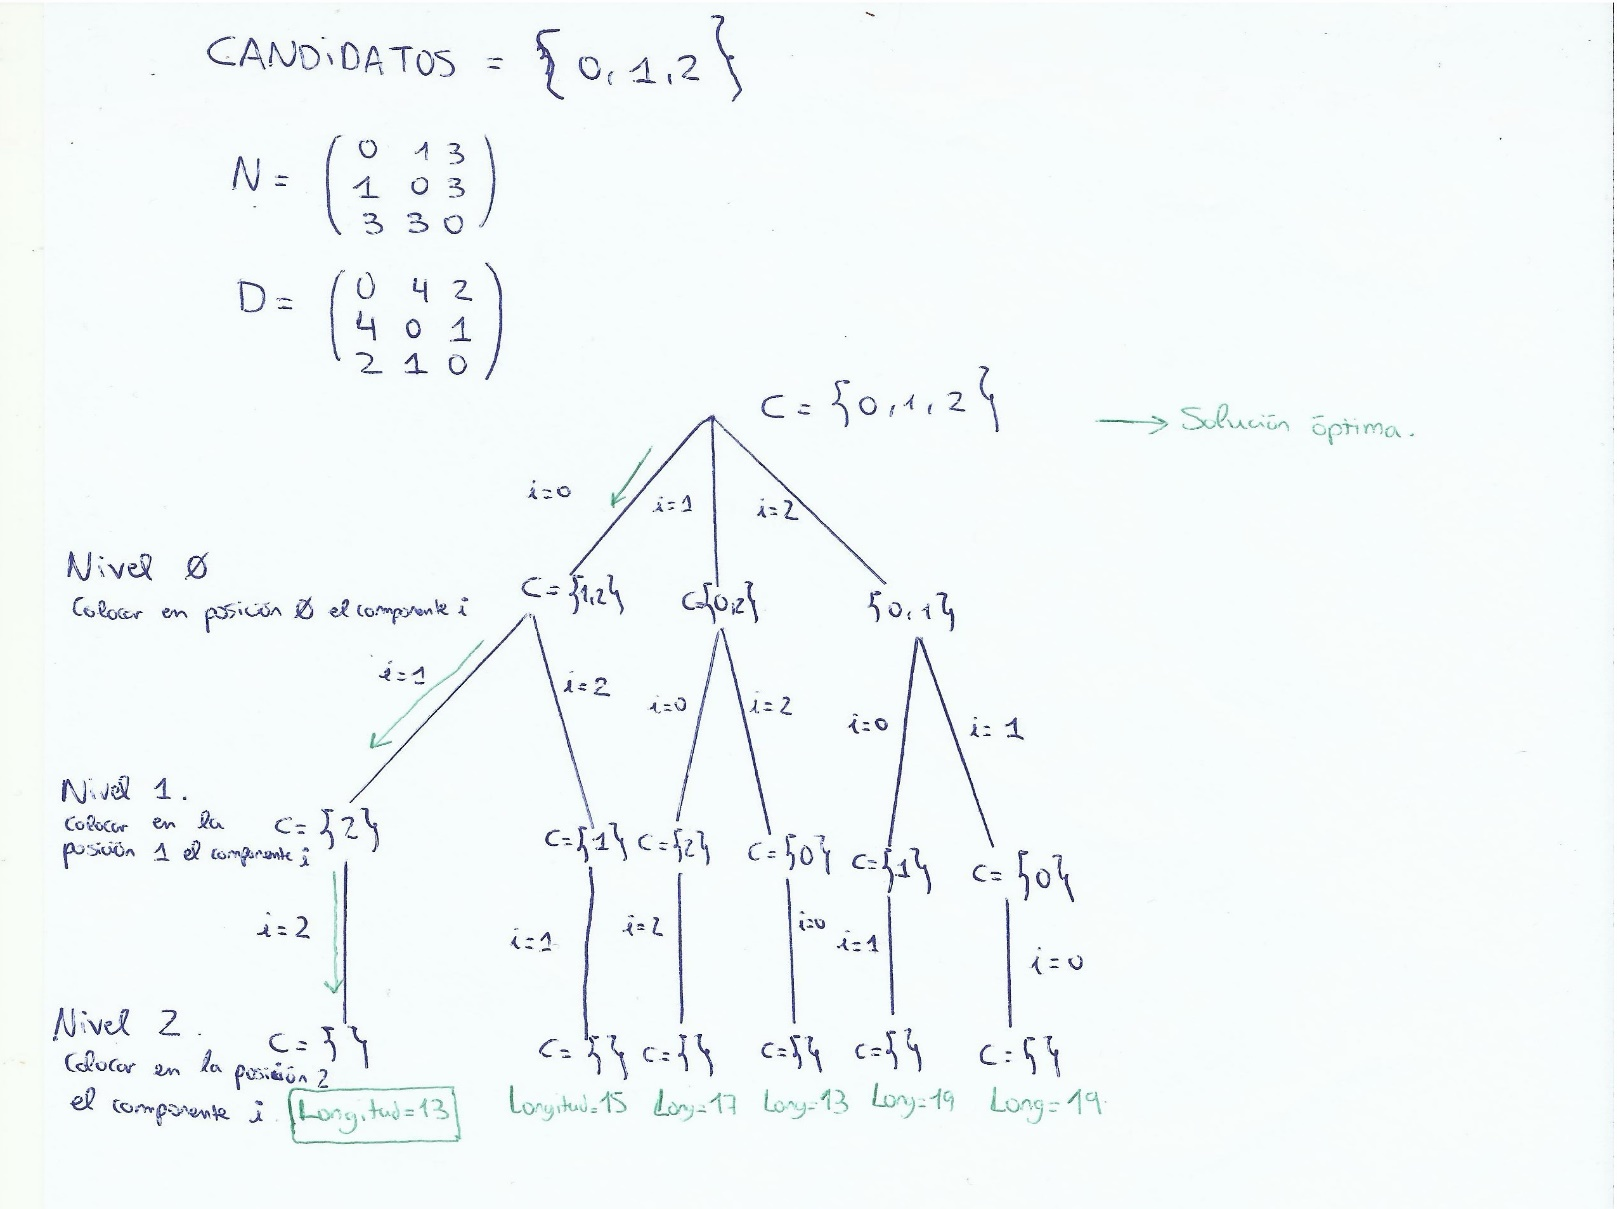 CANDiDATOS = {0, 1, 2}
N = ( 0 1 3
1 0 3
3 3 0 )
D = ( 0 4 2
4 0 1
2 1 0 )
C = {0, 1, 2}
→ Solución óptima.
i=0 i=1 i=2
Nivel Ø
Colocar en posición Ø el componente i
C = {1,2} C={0,2} {0, 1}
i=1 i=2 i=0 i=2 i=0 i= 1
Nivel 1.
Colocar en la
posición 1 el componente i
C= {2} C={1} C={2} C={0} C={1} C= {0}
i=2 i=1 i=2 i=0 i=1 i=0
Nivel 2.
Colocar en la posición 2
el componente i.
C= {} C= {} C={} C={} C={} C={}
Longitud=13 Longitud=15 Long=17 Long=13 Long=19 Long=19.